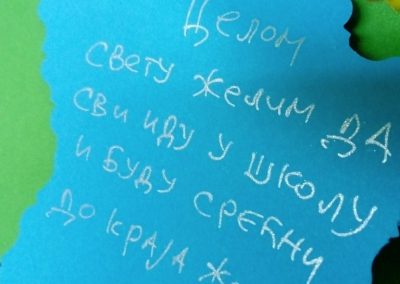 Целом
свету желим да
сви иду у школу
и буду срећни
до краја